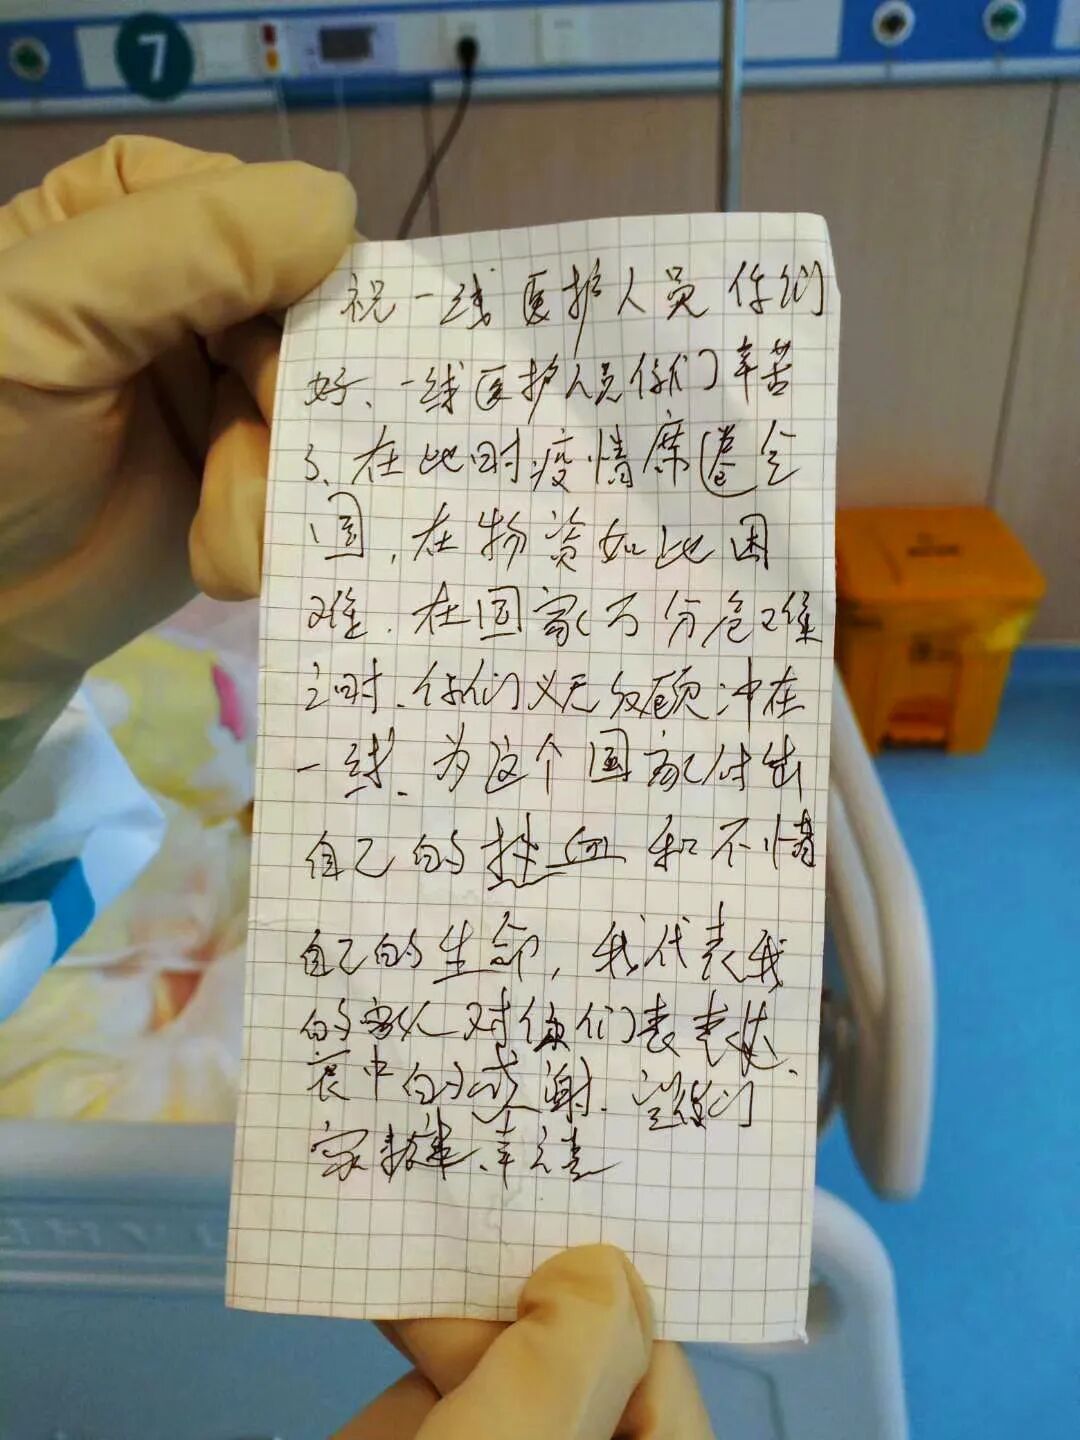 7
祝一线医护人员你们
好、一线医护人员你们辛苦
了、在此时疫情席卷全
国，在物资如此困
难．在国家万分危难
之时、你们义无反顾冲在
一线、为这个国家付出
自己的热血和不惜
自己的生命，我代表我
的家人对你们表表达
衷中的感谢．望你们
家